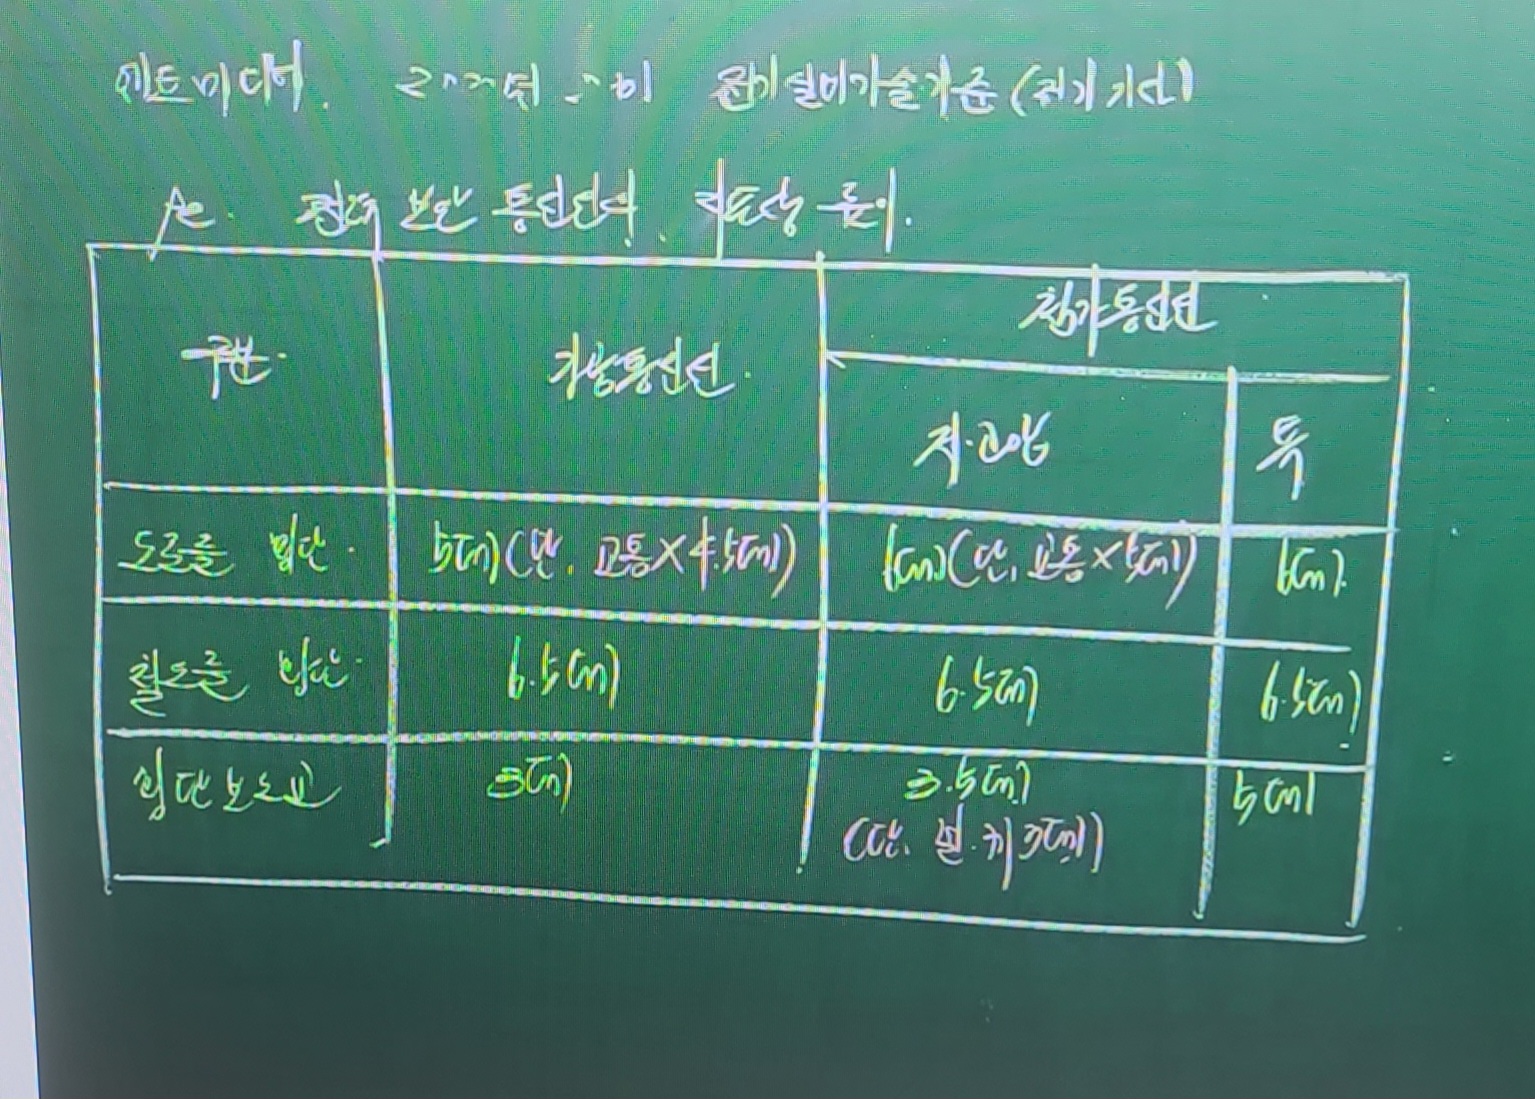 엔트미디어. 전기설비기술기준(전기기사)
전력 보안 통신선의 지표상 높이.
구분. 가공통신선. 첨가통신선
저·고압 특
도로를 횡단. 5(m)(단, 교통X 4.5(m)) 6(m)(단, 교통X 5(m)) 6(m).
철도를 횡단. 6.5(m) 6.5(m) 6.5(m)
횡단보도교 3(m) 3.5(m) 5(m)
(단, 절·케 3(m))